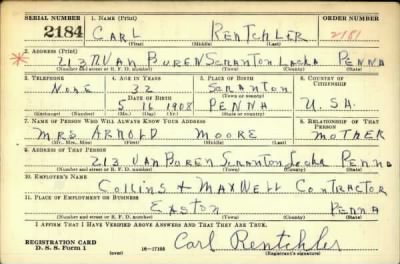 SERIAL NUMBER 1. NAME (Print) ORDER NUMBER
2184 CARL RENTCHLER 2181
(First) (Middle) (Last)
2. ADDRESS (Print)
* 213 N VAN BUREN SCRANTON LACKA PENNA
(Number and street or R. F. D. number) (Town) (County) (State)
3. TELEPHONE 4. AGE IN YEARS 5. PLACE OF BIRTH 6. COUNTRY OF CITIZENSHIP
NONE 32 SCRANTON
DATE OF BIRTH (Town or county)
5 16 1908 PENNA U.S.A.
(Exchange) (Number) (Mo.) (Day) (Yr.) (State or country)
7. NAME OF PERSON WHO WILL ALWAYS KNOW YOUR ADDRESS 8. RELATIONSHIP OF THAT PERSON
MRS ARNOLD MOORE MOTHER
(Mr., Mrs., Miss) (First) (Middle) (Last)
9. ADDRESS OF THAT PERSON
213 VAN BUREN SCRANTON Lacka PENNA
(Number and street or R. F. D. number) (Town) (County) (State)
10. EMPLOYER'S NAME
COLLINS + MAXWELL CONTRACTOR
11. PLACE OF EMPLOYMENT OR BUSINESS
EASTON PENNA
(Number and street or R. F. D. number) (Town) (County) (State)
I AFFIRM THAT I HAVE VERIFIED ABOVE ANSWERS AND THAT THEY ARE TRUE.
REGISTRATION CARD
D. S. S. Form 1 (over) 16-17105 Carl Rentchler
(Registrant's signature)